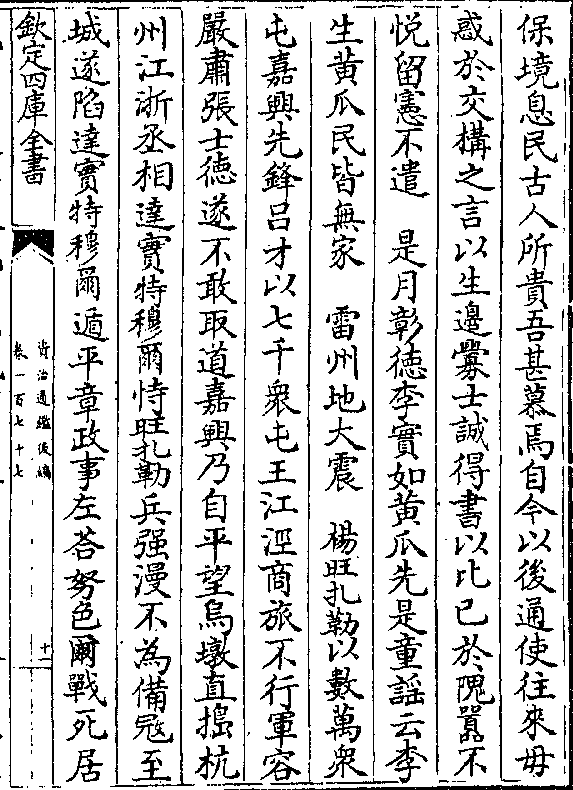 保境息民古人所貴吾甚慕焉自今以後通使往來毋
惑於交搆之言以生邊釁士誠得書以比已於隗囂不
悅留憲不遣　是月彰徳李實如黄瓜先是童謡云李
生黄瓜民皆無家　雷州地大震　楊旺扎勒以數萬衆
屯嘉興先鋒吕才以七千衆屯王江涇商旅不行軍容
嚴肅張士徳遂不敢取道嘉興乃自平望烏墩直搗杭
州江浙丞相達實特穆爾恃旺扎勒兵强漫不為備冦至
城遂陷達實特穆爾遁平章政事左荅努色爾戰死居
欽定四庫全書
資治通鑑後編
卷一百七十七
十一